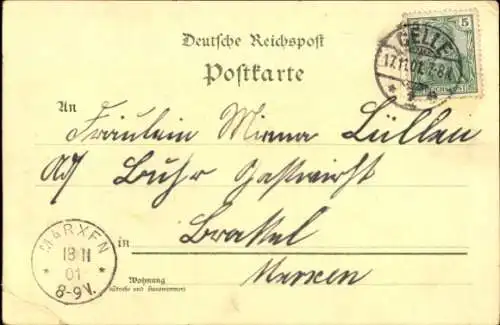 Deutsche Reichspost
Postkarte
5
CELLE
17.11.01. 7-8
An
Fräulein Minna Lüllau
Buhr Gastwirth
in Brackel
Marxen
MARXEN
18 11
01
8-9V.
Wohnung
(Straße und Hausnummer)